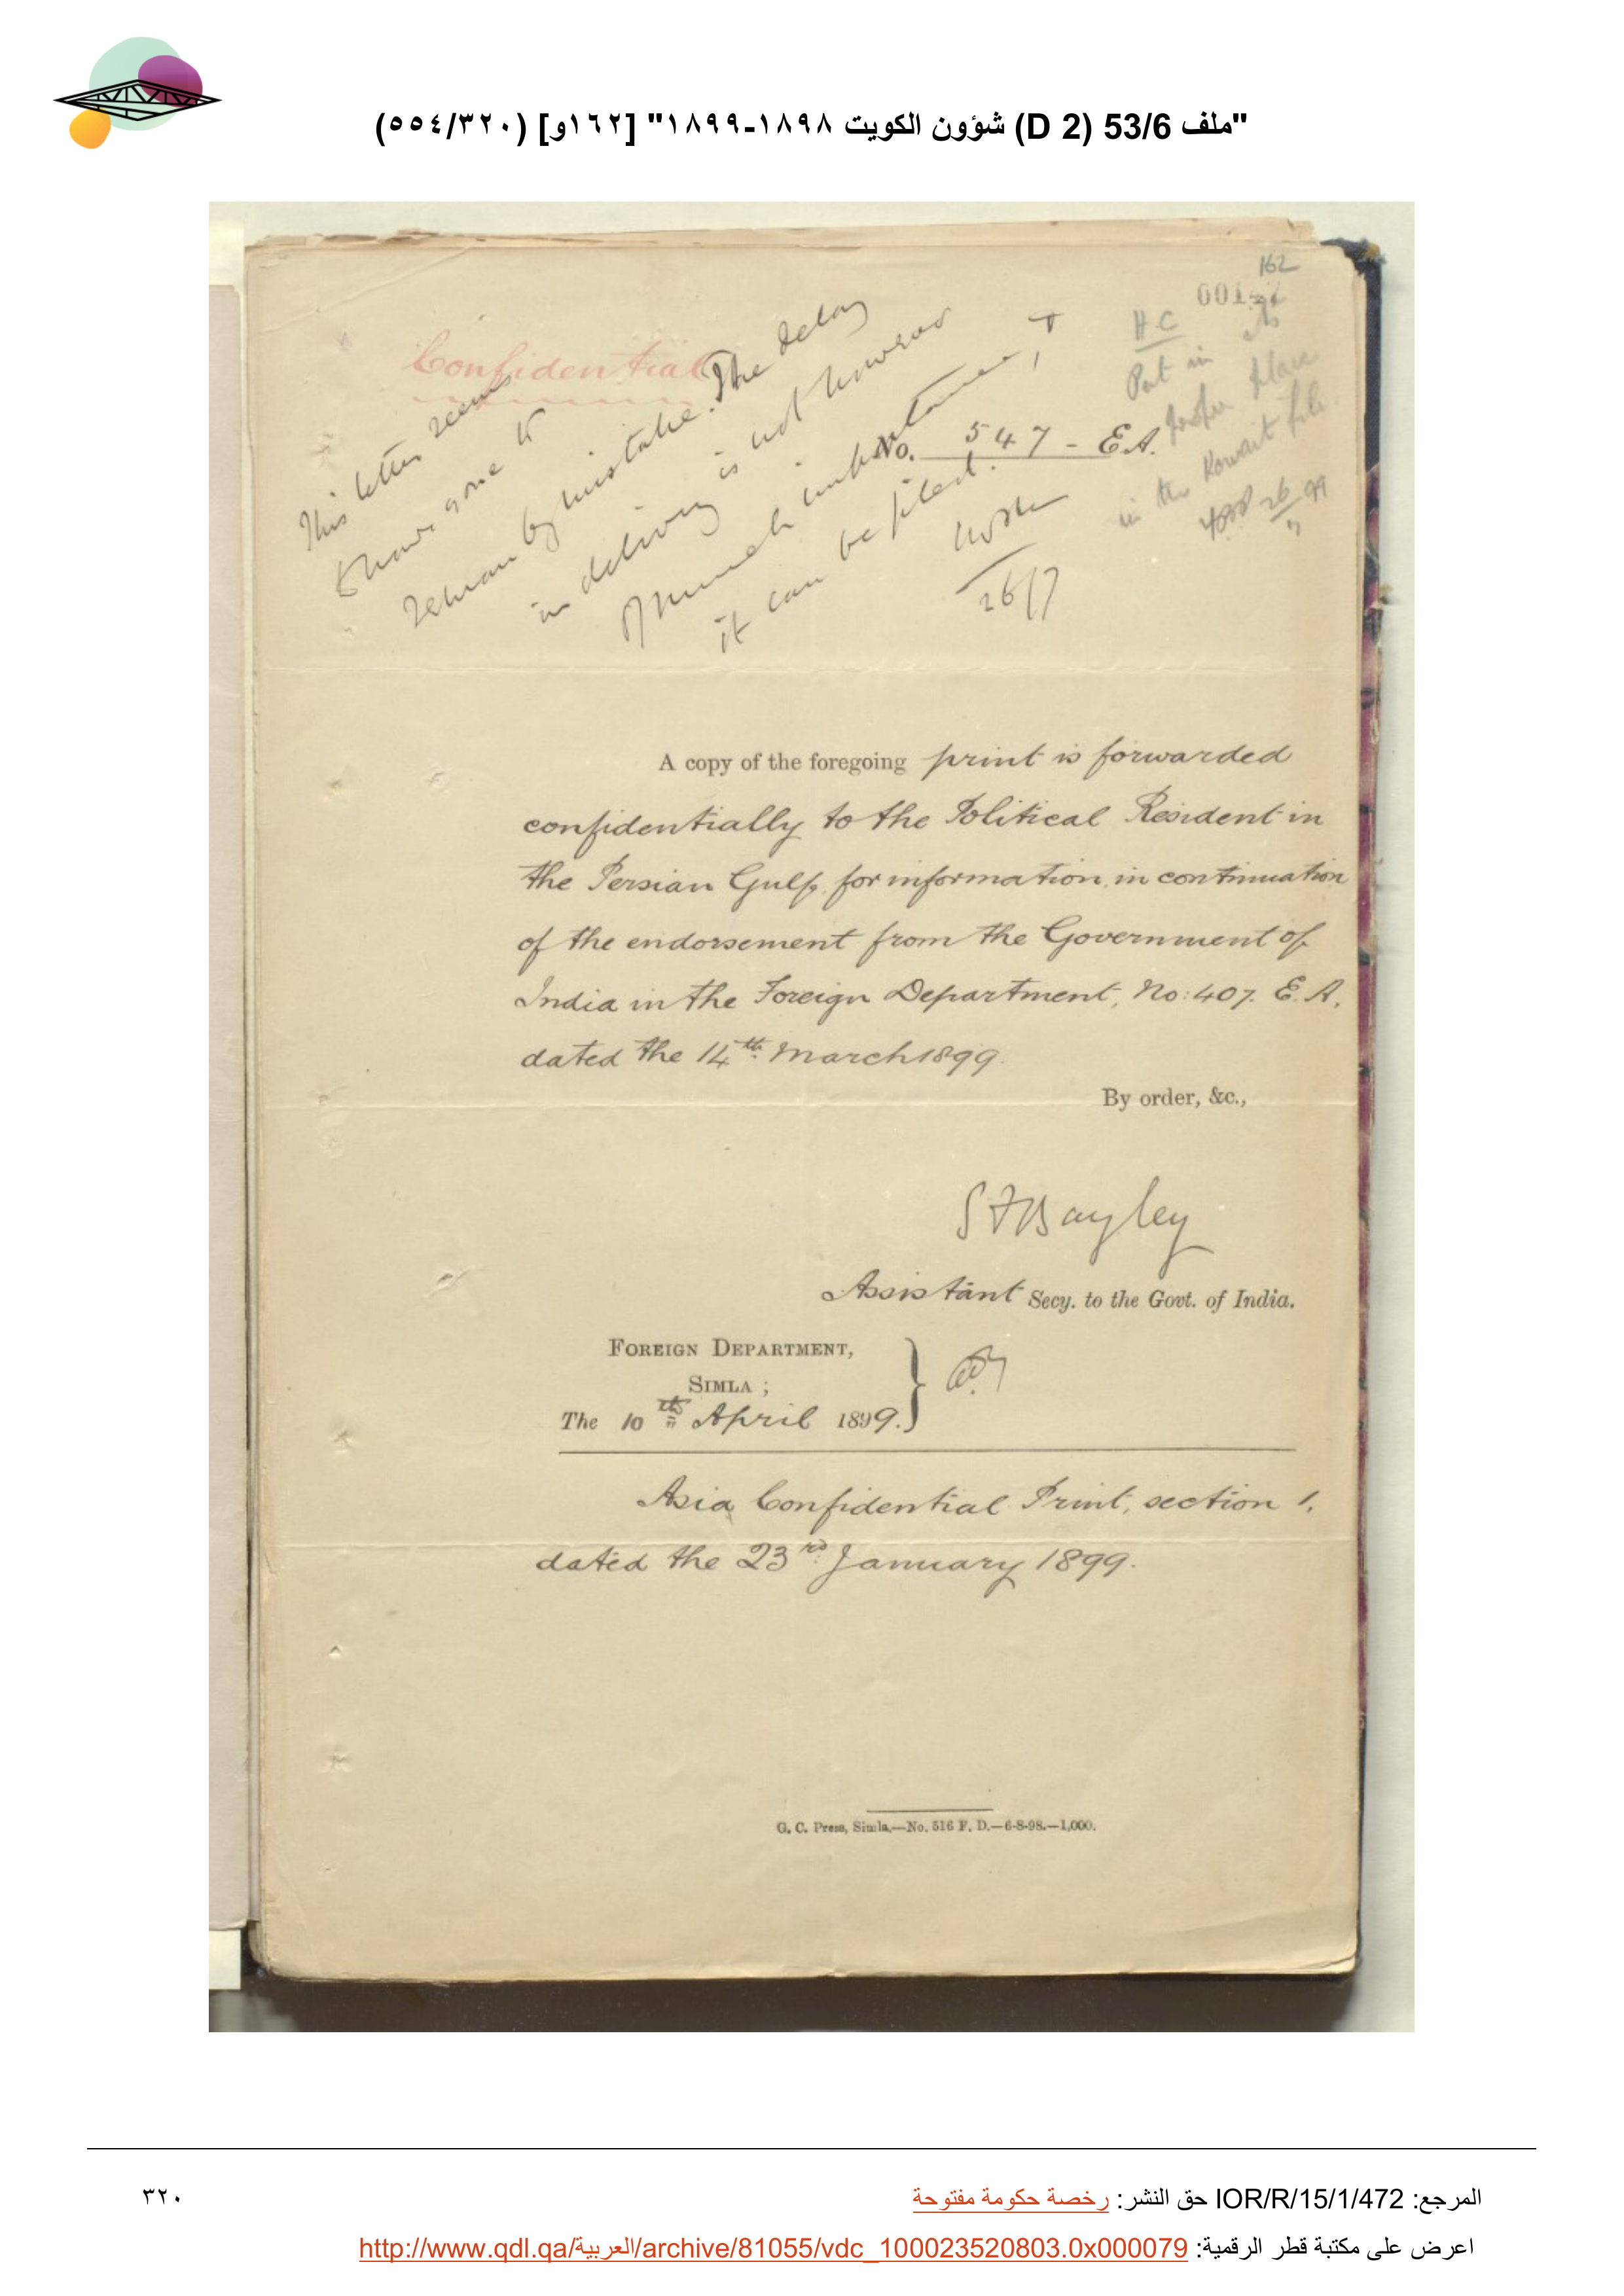 "ملف 53/6 (D 2) شؤون الكويت ١٨٩٨-١٨٩٩" [١٦٢و] (٥٥٤/٣٢٠)
162
Confidential
This letter seems
to have gone to
Tehran by mistake. The delay
in delivery is not however
of much importance, &
it can be filed.
26/7
H C
Put in its
proper place
in the Kowait file.
26
99
No. 547 - E.A.
A copy of the foregoing print is forwarded
confidentially to the Political Resident in
the Persian Gulf, for information, in continuation
of the endorsement from the Government of
India in the Foreign Department, No: 407. E. A.
dated the 14th March 1899.
By order, &c.,
S F Bayley
Assistant Secy. to the Govt. of India.
FOREIGN DEPARTMENT,
SIMLA ;
The 10th April 1899.
Asia Confidential Print, section 1,
dated the 23rd January 1899.
G. C. Press, Simla.—No. 516 F. D.—6-8-98.—1,000.
المرجع: IOR/R/15/1/472 حق النشر: رخصة حكومة مفتوحة
٣٢٠
اعرض على مكتبة قطر الرقمية: http://www.qdl.qa/العربية/archive/81055/vdc_100023520803.0x000079